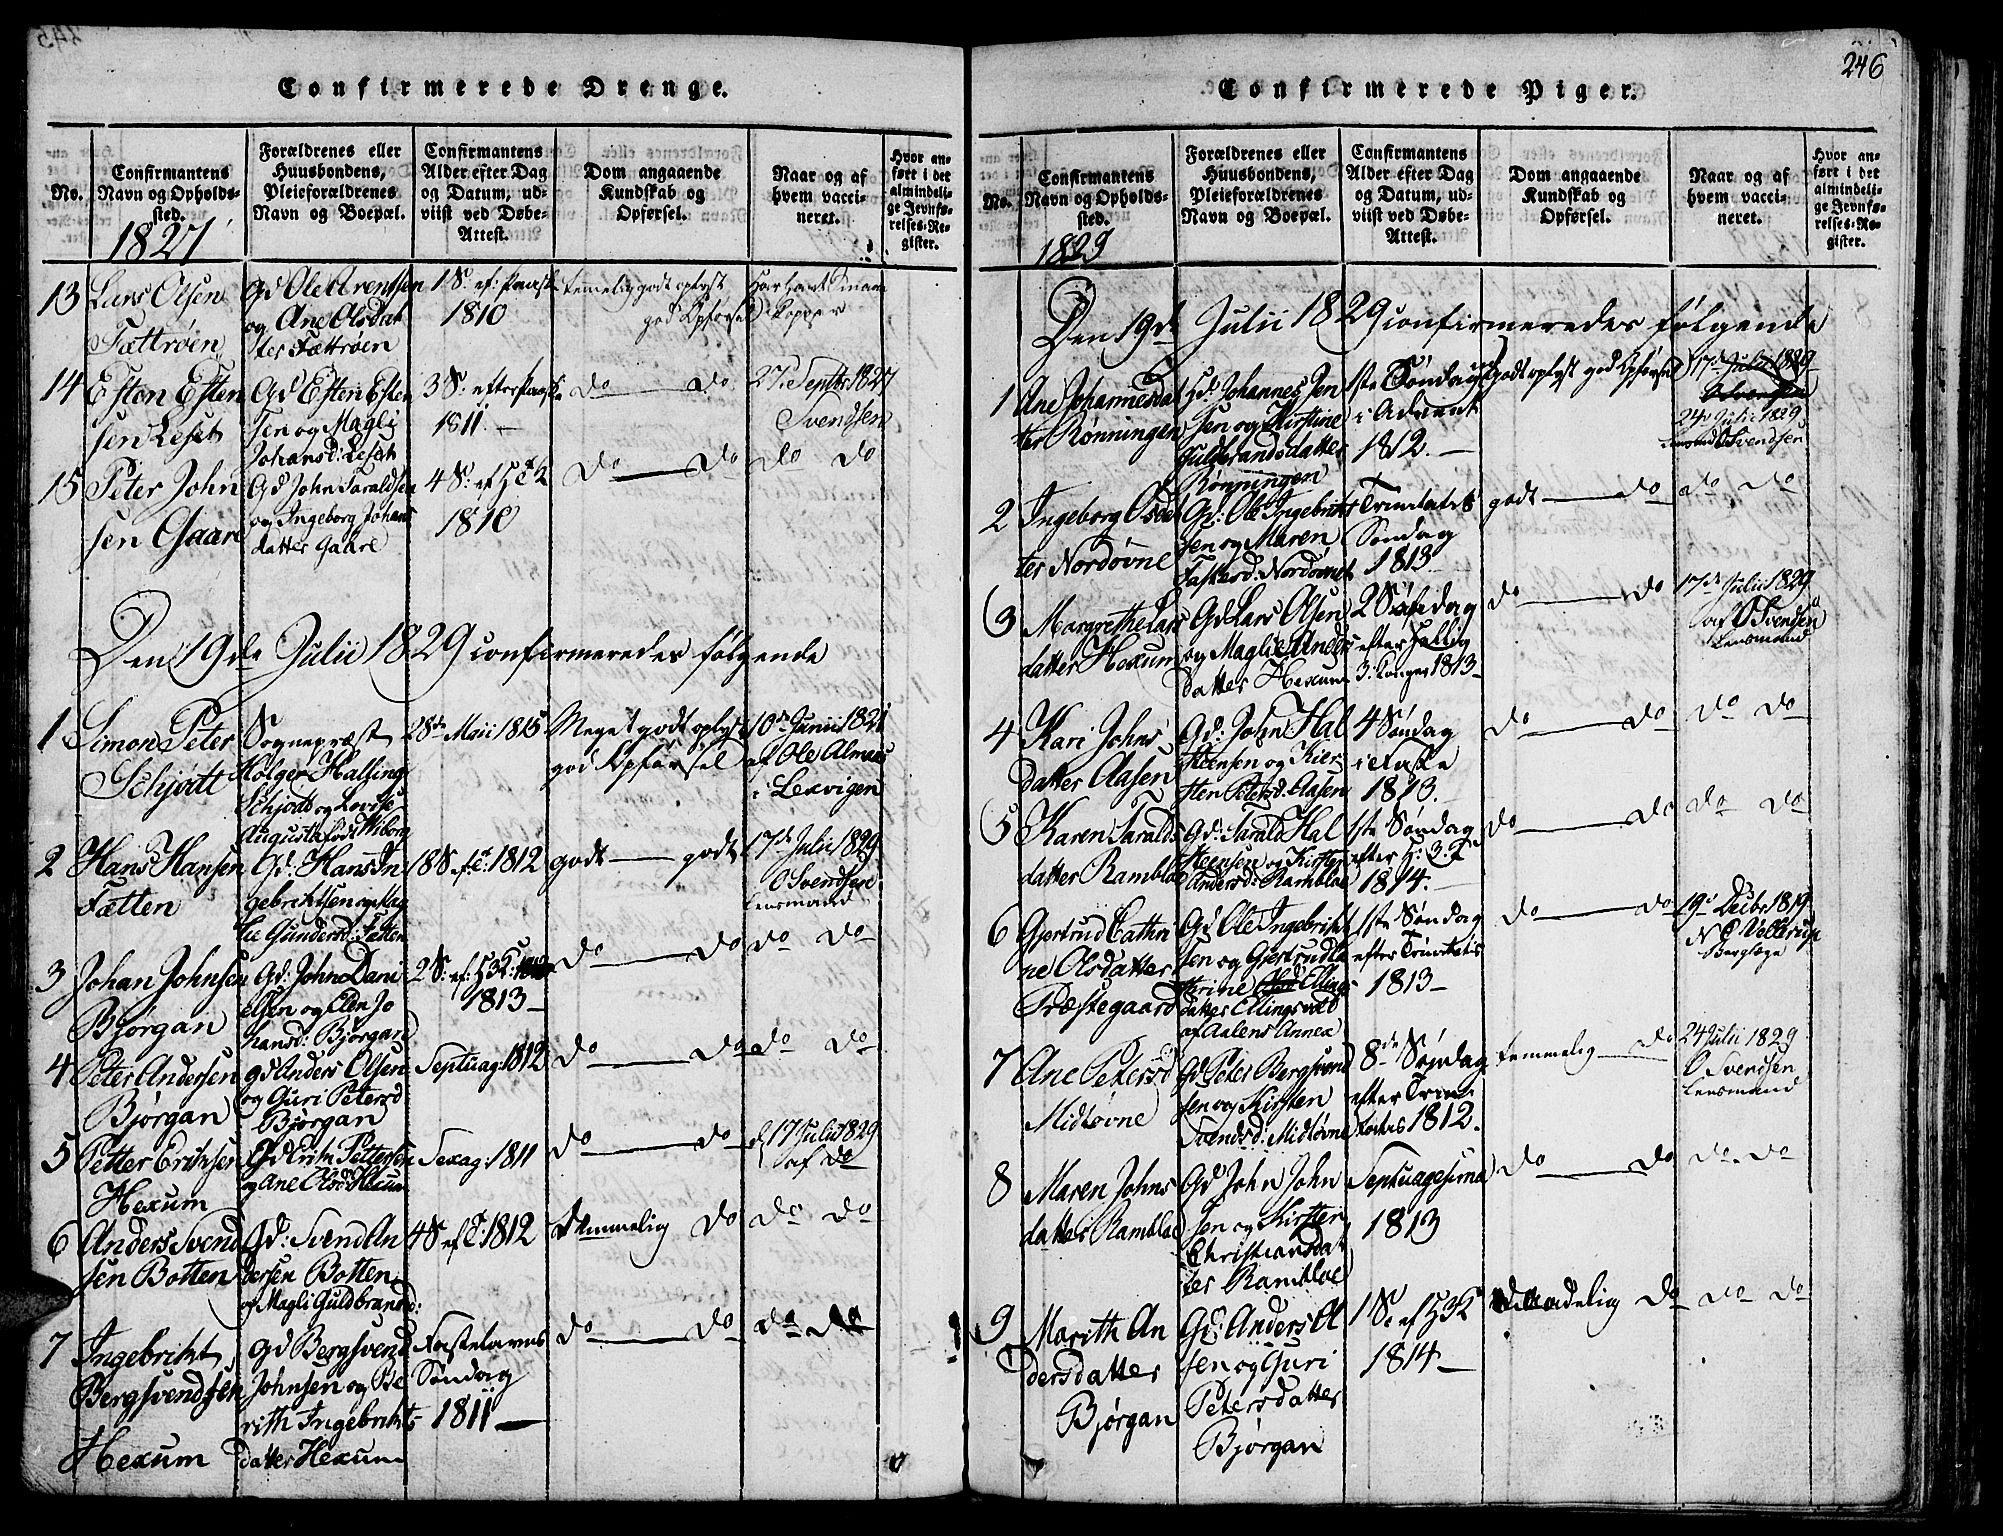 246
Confirmerede Drenge.
No.
Confirmantens
Navn og Opholds-
sted.
1827
Forældrenes eller
Huusbondens,
Pleieforældrenes
Navn og Boepæl.
Confirmantens
Alder efter Dag
og Datum, ud-
viist ved Døbe-
Attest.
Dom angaaende
Kundskab og
Opførsel.
Naar og af
hvem vacci-
neret.
Hvor an-
ført i det
almindeli-
ge Jevnfø-
relses-Re-
gister.
13
Lars Olsen
Fættrøen
Gd Ole Arentsen
og Ane Olsdat
ter Fættrøen
1 S: ef: Paaske
1810
temelig godt oplyst
god Opførsel
Har havt
Kopper
14
Esten Esten
sen Leset
Gd Esten Esten
sen og Magli
Johansd: Leset
3 S: efter Paaske
1811.
do do
27de Septbr 1827
Svendsen
15
Peter John
sen Gaare
Gd John Taraldsen
og Ingeborg Johans
datter Gaare
4 S: ef
1810
do do
do do
Den 19de Julii 1829 confirmeredes følgende
1
Simon Peter
Schjødt
Sogneprest
Holger Halling
Schjødt og Lovise
Augusta født Wiborg
28de Maii 1815
Meget godt oplyst
god Opførsel
10de Junii
af Ole Almaas
i Lexvigen
2
Hans Hansen
Fætten
Gd: Hans In
gebrigtsen og Mag
lie Gundersd: Fætten
18 S. ef T: 1812
godt godt
17de Julii 1829
O Svendsen
Lensmand
3
Johan Johnsen
Bjørgan
Gd: John Dani
elsen og Elen Jo
hansd: Bjørgan
2 S: ef: H 3 K:
1813
do do
do do
4
Peter Andersen
Bjørgan
Gd Anders Olsen
og Guri Petersd
Bjørgan
Septuag: 1812
do do
do do
5
Petter Erichsen
Hexum
Gd Erich Pettersen
og Ane Olsd Hexum
Sexag: 1811
do do
d 17 Julii 1829
af do
6
Anders Svend
sen Botten
Gd: Svend An
dersen Botten
og Magli Guldbrandsd:
4 S ef T: 1812
temmelig do
do do
7
Ingebrikt
Bergsvendsen
Hexum
Gd Bergsvend
Johnsen og Be
rith Ingebrikts
datter Hexum
Fastelavns
Søndag
1811
do do
do do
Confirmerede Piger.
No.
Confirmantens
Navn og Opholds-
sted.
1829
Forældrenes eller
Huusbondens,
Pleieforældrenes
Navn og Boepæl.
Confirmantens
Alder efter Dag
og Datum, ud-
viist ved Døbe-
Attest.
Dom angaaende
Kundskab og
Opførsel.
Naar og af
hvem vacci-
neret.
Hvor an-
ført i det
almindeli-
ge Jevnfø-
relses-Re-
gister.
Den 19de Julii 1829 confirmeredes følgende
1
Ane Johannesdat
ter Rønningen
Gd: Johannes Jen
sen og Kirstine
Guldbrandsdatter
Rønningen
1ste Søndag
i Advent
1812.
godt oplyst god Opførsel
17de Julii 1829
24de Julii 1829
Lensmd O Svendsen
2
Ingeborg Olsdat
ter Nordøvne
Gd: Ole Ingebrikt
sen og Maren
Nordøvnet
Trinitatis
Søndag
1813
godt do
do do
3
Margrethe Lars
datter Hexum
Gd Lars Olsen
og Magli Anders
datter Hexum
2 Søndag
efter Hellig
3 Konger 1813
do do
17de Julii 1829
af O Svendsen
Lensmand
4
Kari Johns
datter Aasen
Gd: John Hal
steensen og Kier
sten Petersd: Aasen
4 Søndag
i Faste
1813.
do do
do do
5
Karen Taralds
datter Rambloe
Gd: Tarald Hal
steensen og Kirsten
Andersd: Rambloe
1ste Søndag
efter H: 3: K
1814.
do do
do do
6
Gjertrud Cathri
ne Olsdatter
Præstegaard
Gd Ole Ingebrikt
sen og Gjertrud Ca
thrine Ellings
datter Ellingsvold
af Aalens Annex
1ste Søndag
efter Trinitatis
1813
do do
19de Decbr 1819
7
Ane Petersd
Midtøvne
Gd Peter Bergsvend
sen og Kirsten
Svendsd: Midtøvne
8de Søndag
efter Trini
tatis 1812.
temmelig do
24 Julii 1829
O Svendsen
Lensmand
8
Maren Johns
datter Rambloe
Gd John John
sen og Kirsten
Christiansdat
ter Rambloe
Septuagesima
1813
do do
do do
9
Marith An
dersdatter
Bjørgan
Gd: Anders Ol
sen og Guri
Petersdatter
Bjørgan
1 S. ef H 3 K
1814
do
do do